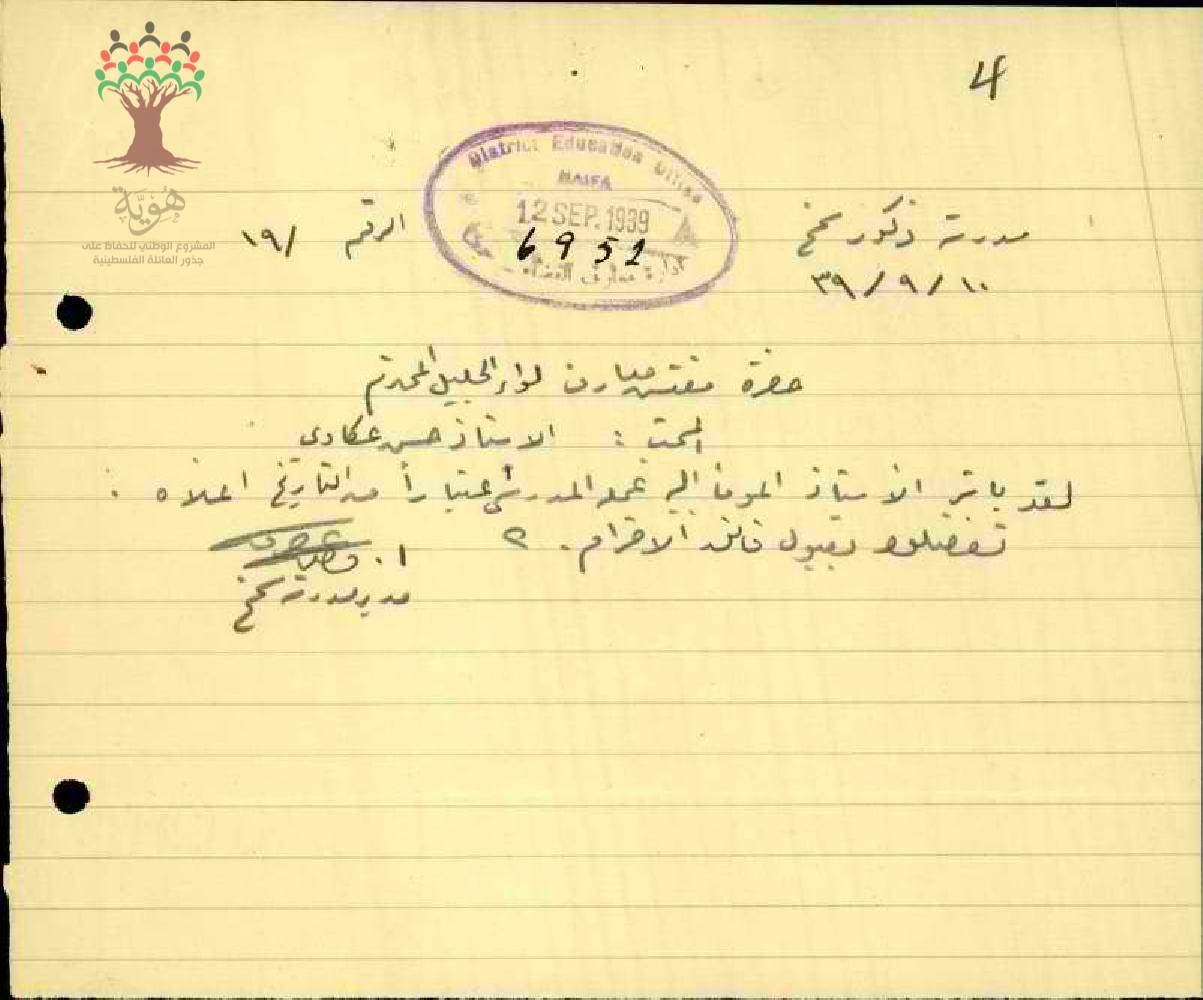 4
هُوِيَّة
المشروع الوطني للحفاظ على
جذور العائلة الفلسطينية
District Education Office
HAIFA
12 SEP. 1939
6952
ادارة معارف القضاء
مدرسة ذكور سمخ
الرقم /١٩
١٠/٩/٣٩
حضرة مفتش معارف لواء الجليل المحترم
المبحث : الاستاذ حسن عكاوى
لقد باشر الاستاذ الموما اليه عمله المدرسي اعتباراً من التاريخ اعلاه .
تفضلوا بقبول فائق الاحترام .
مدير مدرسة سمخ